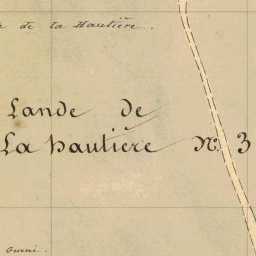 de la Hautière.
Lande de
La hautière N. 3